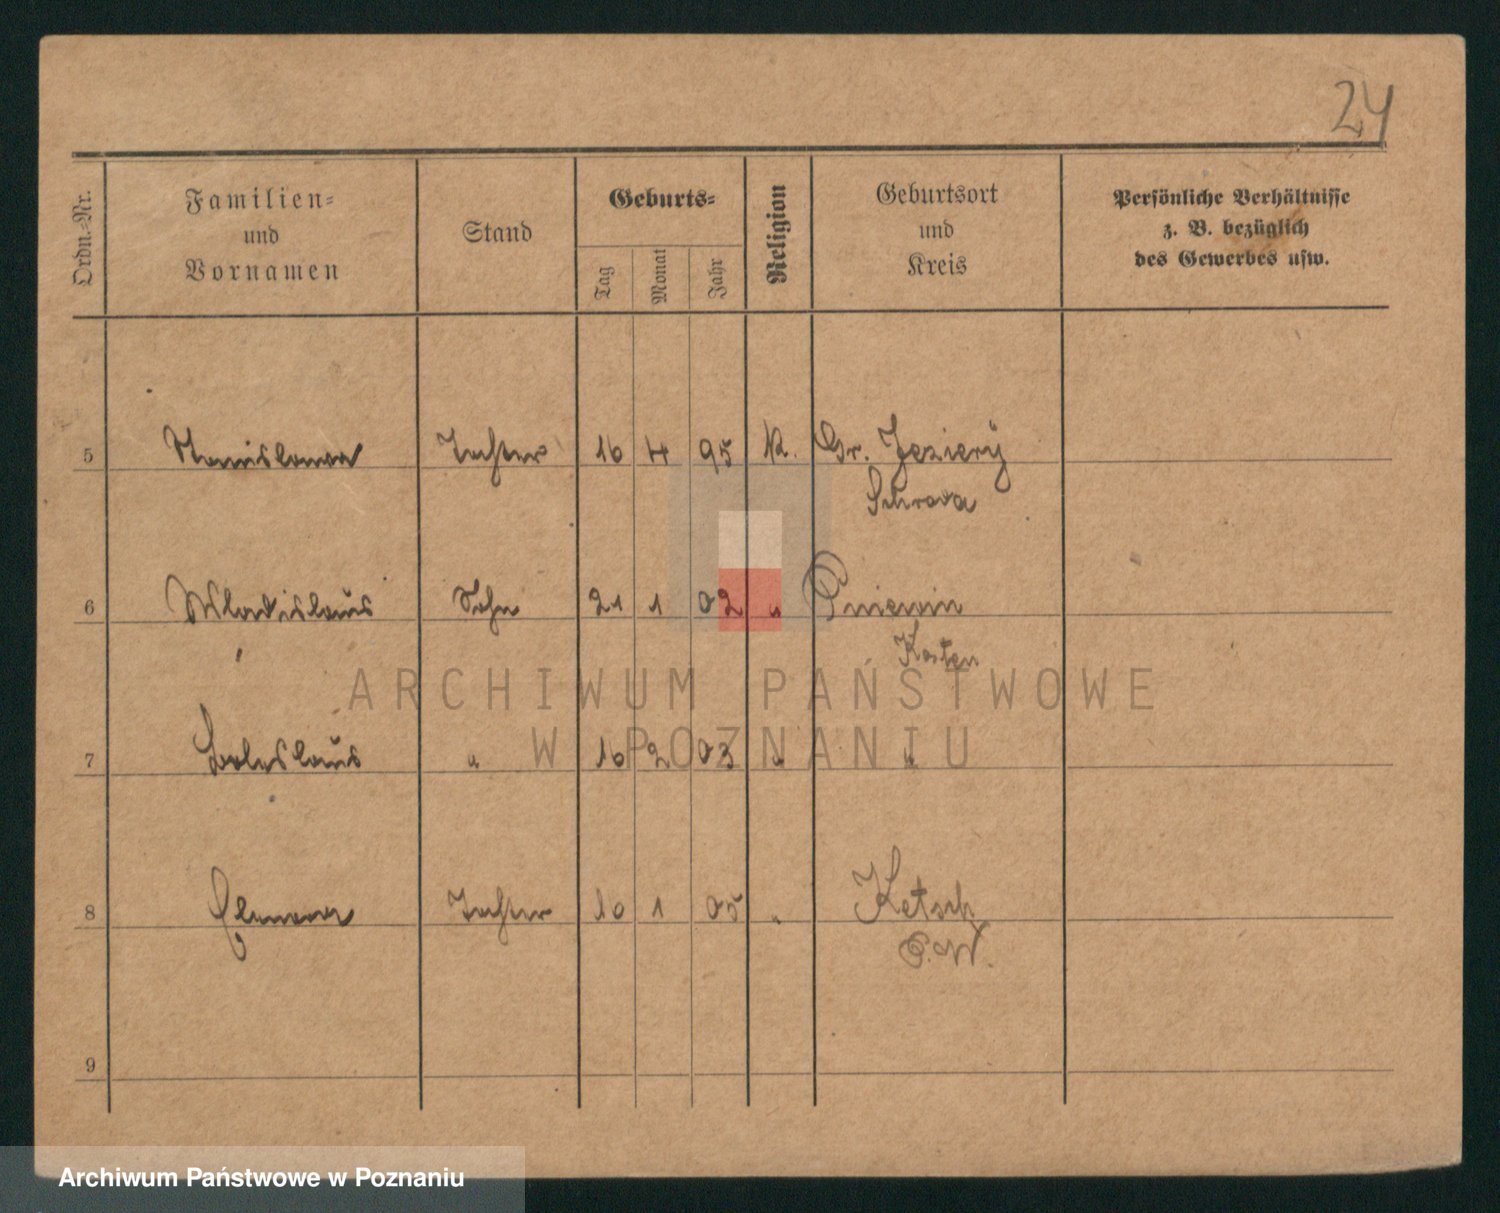 24
Ordn.-Nr.
Familien-
und
Vornamen
Stand
Geburts-
Tag
Monat
Jahr
Religion
Geburtsort
und
Kreis
Persönliche Verhältnisse
z. B. bezüglich
des Gewerbes usw.
5 Stanislawa Tochter 16 4 95 K. Gr. Jeziery
Schroda
6 Wladislaus Sohn 21 1 02 " Pniewin
Kosten
7 Boleslaus " 16 2 03 " "
8 Tochter 10 1 05 " Ketsch
P.W.
9
ARCHIWUM PAŃSTWOWE
W POZNANIU
Archiwum Państwowe w Poznaniu